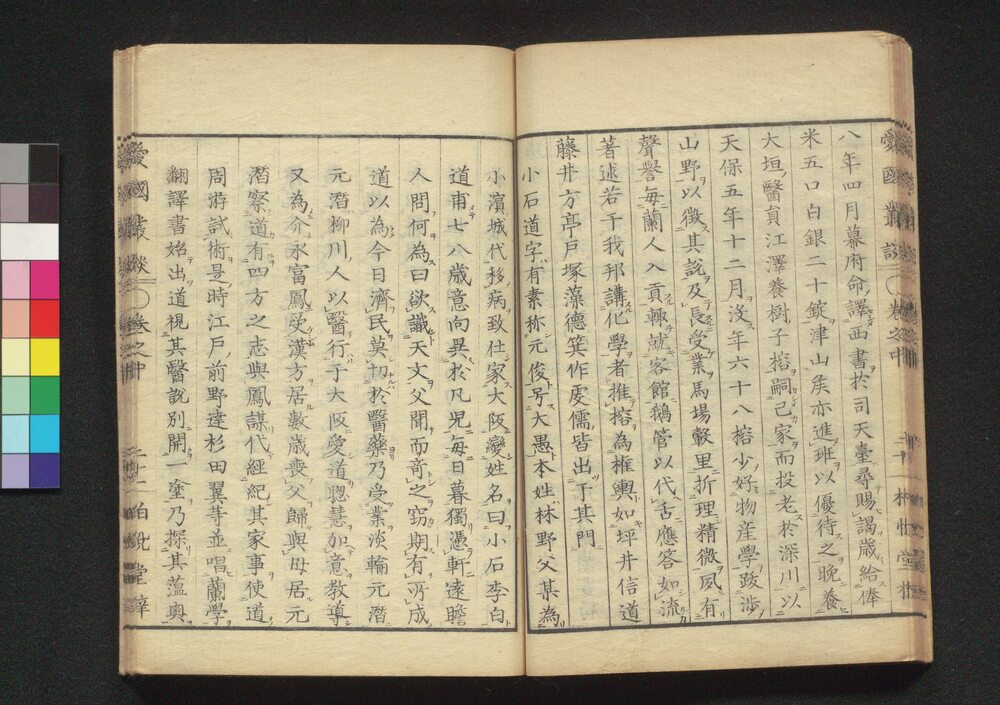 八年四月幕府命譯西書於司天臺尋賜謁歳給俸
米五口白銀二十錠津山矦亦進班以優待之晩養
大垣醫員江澤養樹子榕嗣己家而投老於深川以
天保五年十二月沒年六十八榕少好物産學跋渉
山野以徵其說及長受業馬場轂里折理精微夙有
聲譽毎蘭人入貢輙就客館鵝管以代舌應答如流
著述若干我邦講化學者推榕為權輿如坪井信道
藤井方亭戸塚藻德箕作虔儒皆出于其門
小石道字有素称元俊号大愚本姓林野父某為
小濱城代移病致仕家大阪變姓名曰小石李白
道甫七八歳意向異於凡児毎日暮獨憑軒遠瞻
人問何為曰欲識天文父聞而竒之窃期有所成
道以為今日濟民莫切於醫藥乃受業淡輪元潛
元潛柳川人以醫行于大阪愛道聰慧加意教導
又為介永富鳳受漢方居數歳喪父歸與母居元
潛察道有四方之志與鳳謀代經紀其家事使道
周游試術是時江戸前野達杉田翼等並唱蘭學
翻譯書始出道視其醫說別開一塗乃探其薀奥
愛國叢談
卷之中